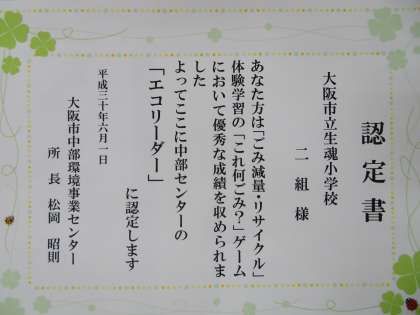 認定書
大阪市立生魂小学校
二組様
あなた方は「ごみ減量・リサイクル」
体験学習の「これ何ごみ？」ゲーム
において優秀な成績を収められま
した
よってここに中部センターの
「エコリーダー」
に認定します
平成三十年六月一日
大阪市中部環境事業センター
所長 松岡 昭則